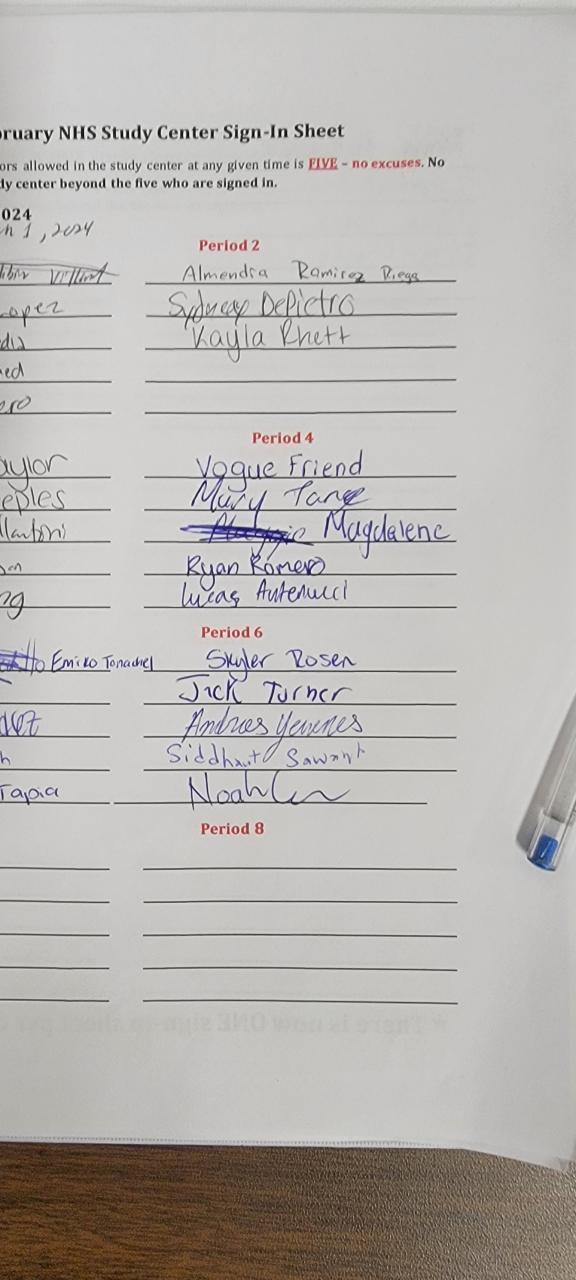 ruary NHS Study Center Sign-In Sheet
ors allowed in the study center at any given time is FIVE – no excuses. No
dy center beyond the five who are signed in.
024
h 1, 2024
Period 2
Almendra Ramirez Diega
opez Sydney DePietro
dis Kayla Rhett
ed
ero
Period 4
aylor Vogue Friend
eples Mary Tang
llantoni Magdalene
on Ryan Romero
ng Lucas Antenucci
Period 6
Emiko Tonachel Skyler Rosen
Jack Turner
Andres Yemenes
h Siddhant Sawant
Tapia Noah
Period 8